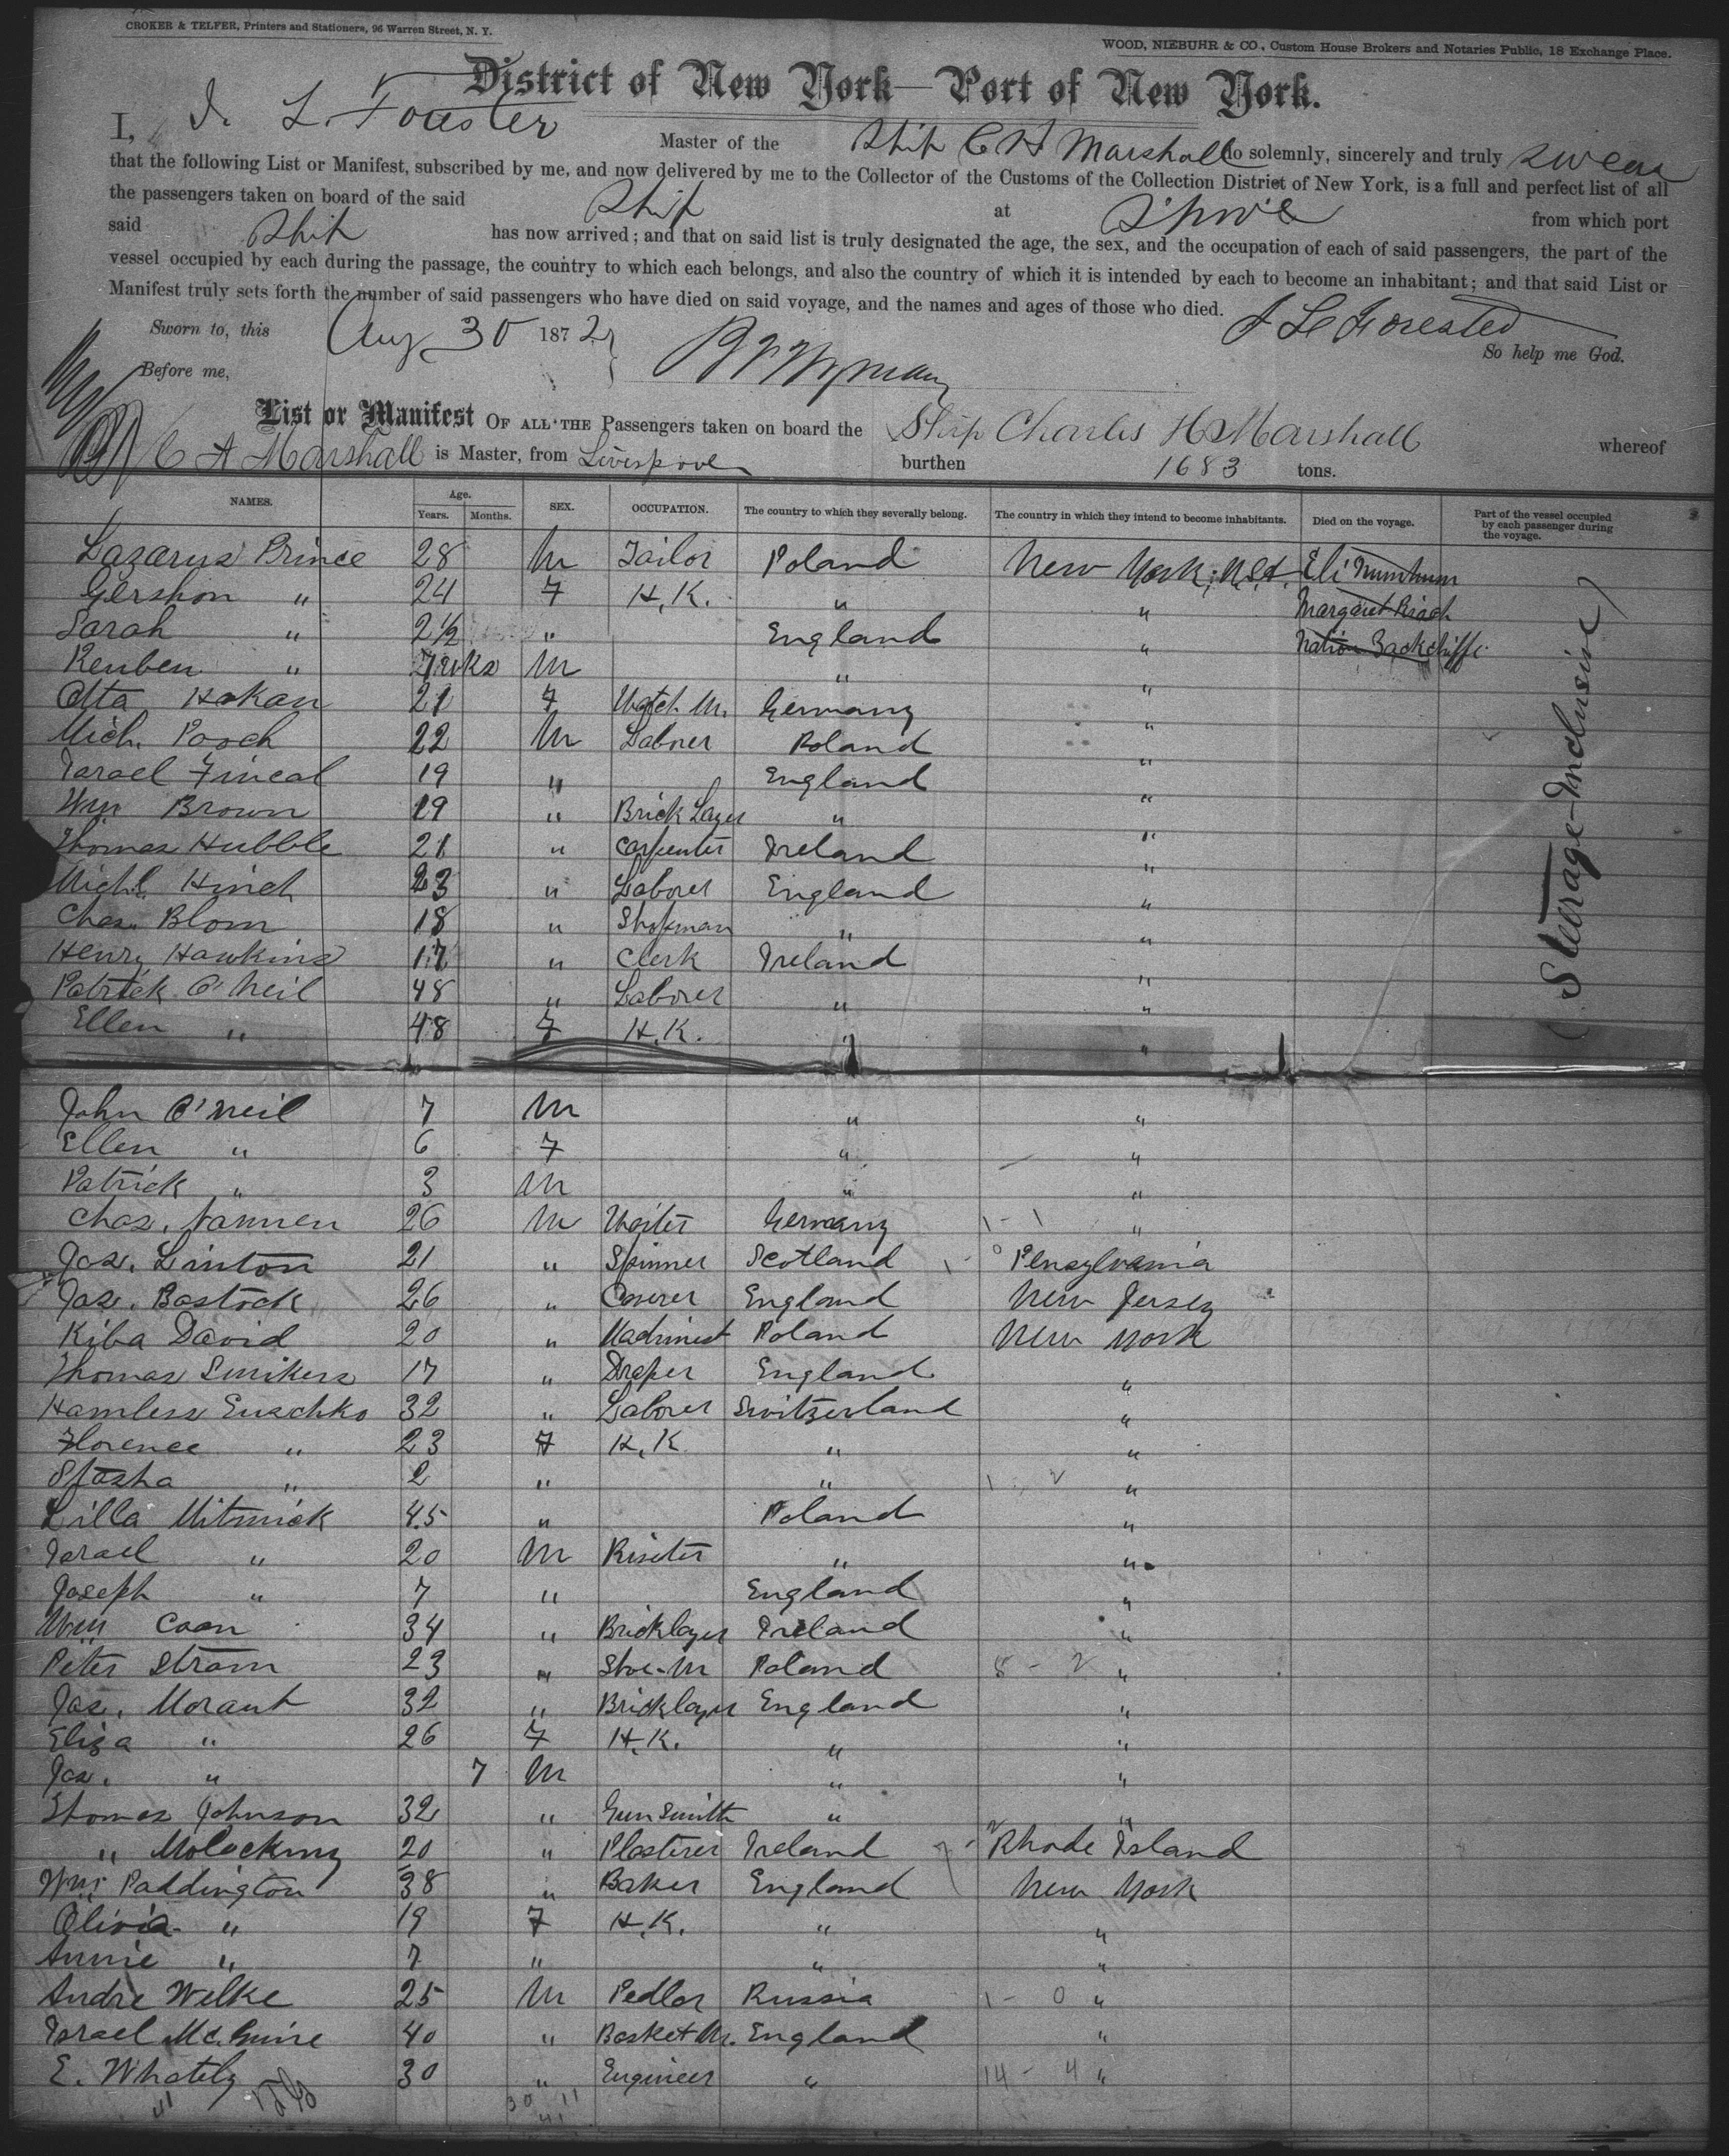 CROKER & TELFER, Printers and Stationers, 96 Warren Street, N. Y.
WOOD, NIEBUHR & CO., Custom House Brokers and Notaries Public, 18 Exchange Place.
District of New York—Port of New York.
I, Master of the Ship C H Marshall do solemnly, sincerely and truly swear
that the following List or Manifest, subscribed by me, and now delivered by me to the Collector of the Customs of the Collection District of New York, is a full and perfect list of all
the passengers taken on board of the said Ship at L'pool from which port
said Ship has now arrived; and that on said list is truly designated the age, the sex, and the occupation of each of said passengers, the part of the
vessel occupied by each during the passage, the country to which each belongs, and also the country of which it is intended by each to become an inhabitant; and that said List or
Manifest truly sets forth the number of said passengers who have died on said voyage, and the names and ages of those who died.
Sworn to, this Aug 30 1872
So help me God.
Before me,
List or Manifest OF ALL THE Passengers taken on board the Ship Charles H Marshall whereof
C H Marshall is Master, from Liverpool burthen 1683 tons.
NAMES. Age. Years. Months. SEX. OCCUPATION. The country to which they severally belong. The country in which they intend to become inhabitants. Died on the voyage. Part of the vessel occupied by each passenger during the voyage.
Lazarus Prince 28 M Tailor Poland New York, U.S.A. Eli
Gershon " 24 F H.K. " " Margaret
Sarah " 2½ " England "
Reuben " 7 wks M " "
Otta Hakan 21 F Watch M. Germany "
Mich. Pooch 22 M Laborer Poland "
Israel Fineal 19 " England "
Wm Brown 19 " Brick Layer " "
Thomas Hubble 21 " Carpenter Ireland "
Michl. Hinch 23 " Laborer England "
Chas. Blom 18 " Shopman " "
Henry Hawkins 17 " Clerk Ireland "
Patrick O'Neil 48 " Laborer " "
Ellen " 48 F H.K. " "
(Steerage-Inclusive)
John O'Neil 7 M " "
Ellen " 6 F " "
Patrick " 3 M " "
Chas. Nannen 26 M Waiter Germany "
Jas. Linton 21 " Spinner Scotland Pensylvania
Jas. Bostock 26 " England New Jersey
Kiba David 20 " Machinest Poland New York
Thomas Smikers 17 " Draper England "
Hamless Euschko 32 " Laborer Switzerland "
Florence " 23 F H.K. " "
Stasha " 2 " " "
Lilla Mitnick 45 " Poland "
Israel " 20 M " "
Joseph " 7 " England "
Wm Coan 34 " Bricklayer Ireland "
Peter Strom 23 " Shoe-M Poland 8 - 2 "
Jas. Morant 32 " Bricklayer England "
Eliza " 26 F H.K. " "
Jas. " 7 M " "
Thomas Johnson 32 " Gunsmith " "
" 20 " Plasterer Ireland Rhode Island
Wm Paddington 38 " Baker England New York
Olivia " 19 F H.K. " "
Annie " 7 " " "
Andre Welke 25 M Pedlar Russia 1 - 0 "
Israel McGuire 40 " Basket M. England "
E. Whately 30 " Engineer " 14 - 4 "
41 30 11
41